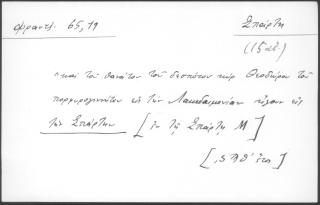 φραντζ. 65,19 Σπάρτη
(15 αἰ)
"καὶ τοῦ θανάτου τοῦ δεσπότου κὺρ Θεοδώρου τοῦ
πορφυρογεννήτου εἰς τὴν Λακεδαιμονίαν εἰς
τὴν Σπάρτην [ἐν τῇ Σπάρτῃ Μ]
[,ςϡλθ' ἔτος]